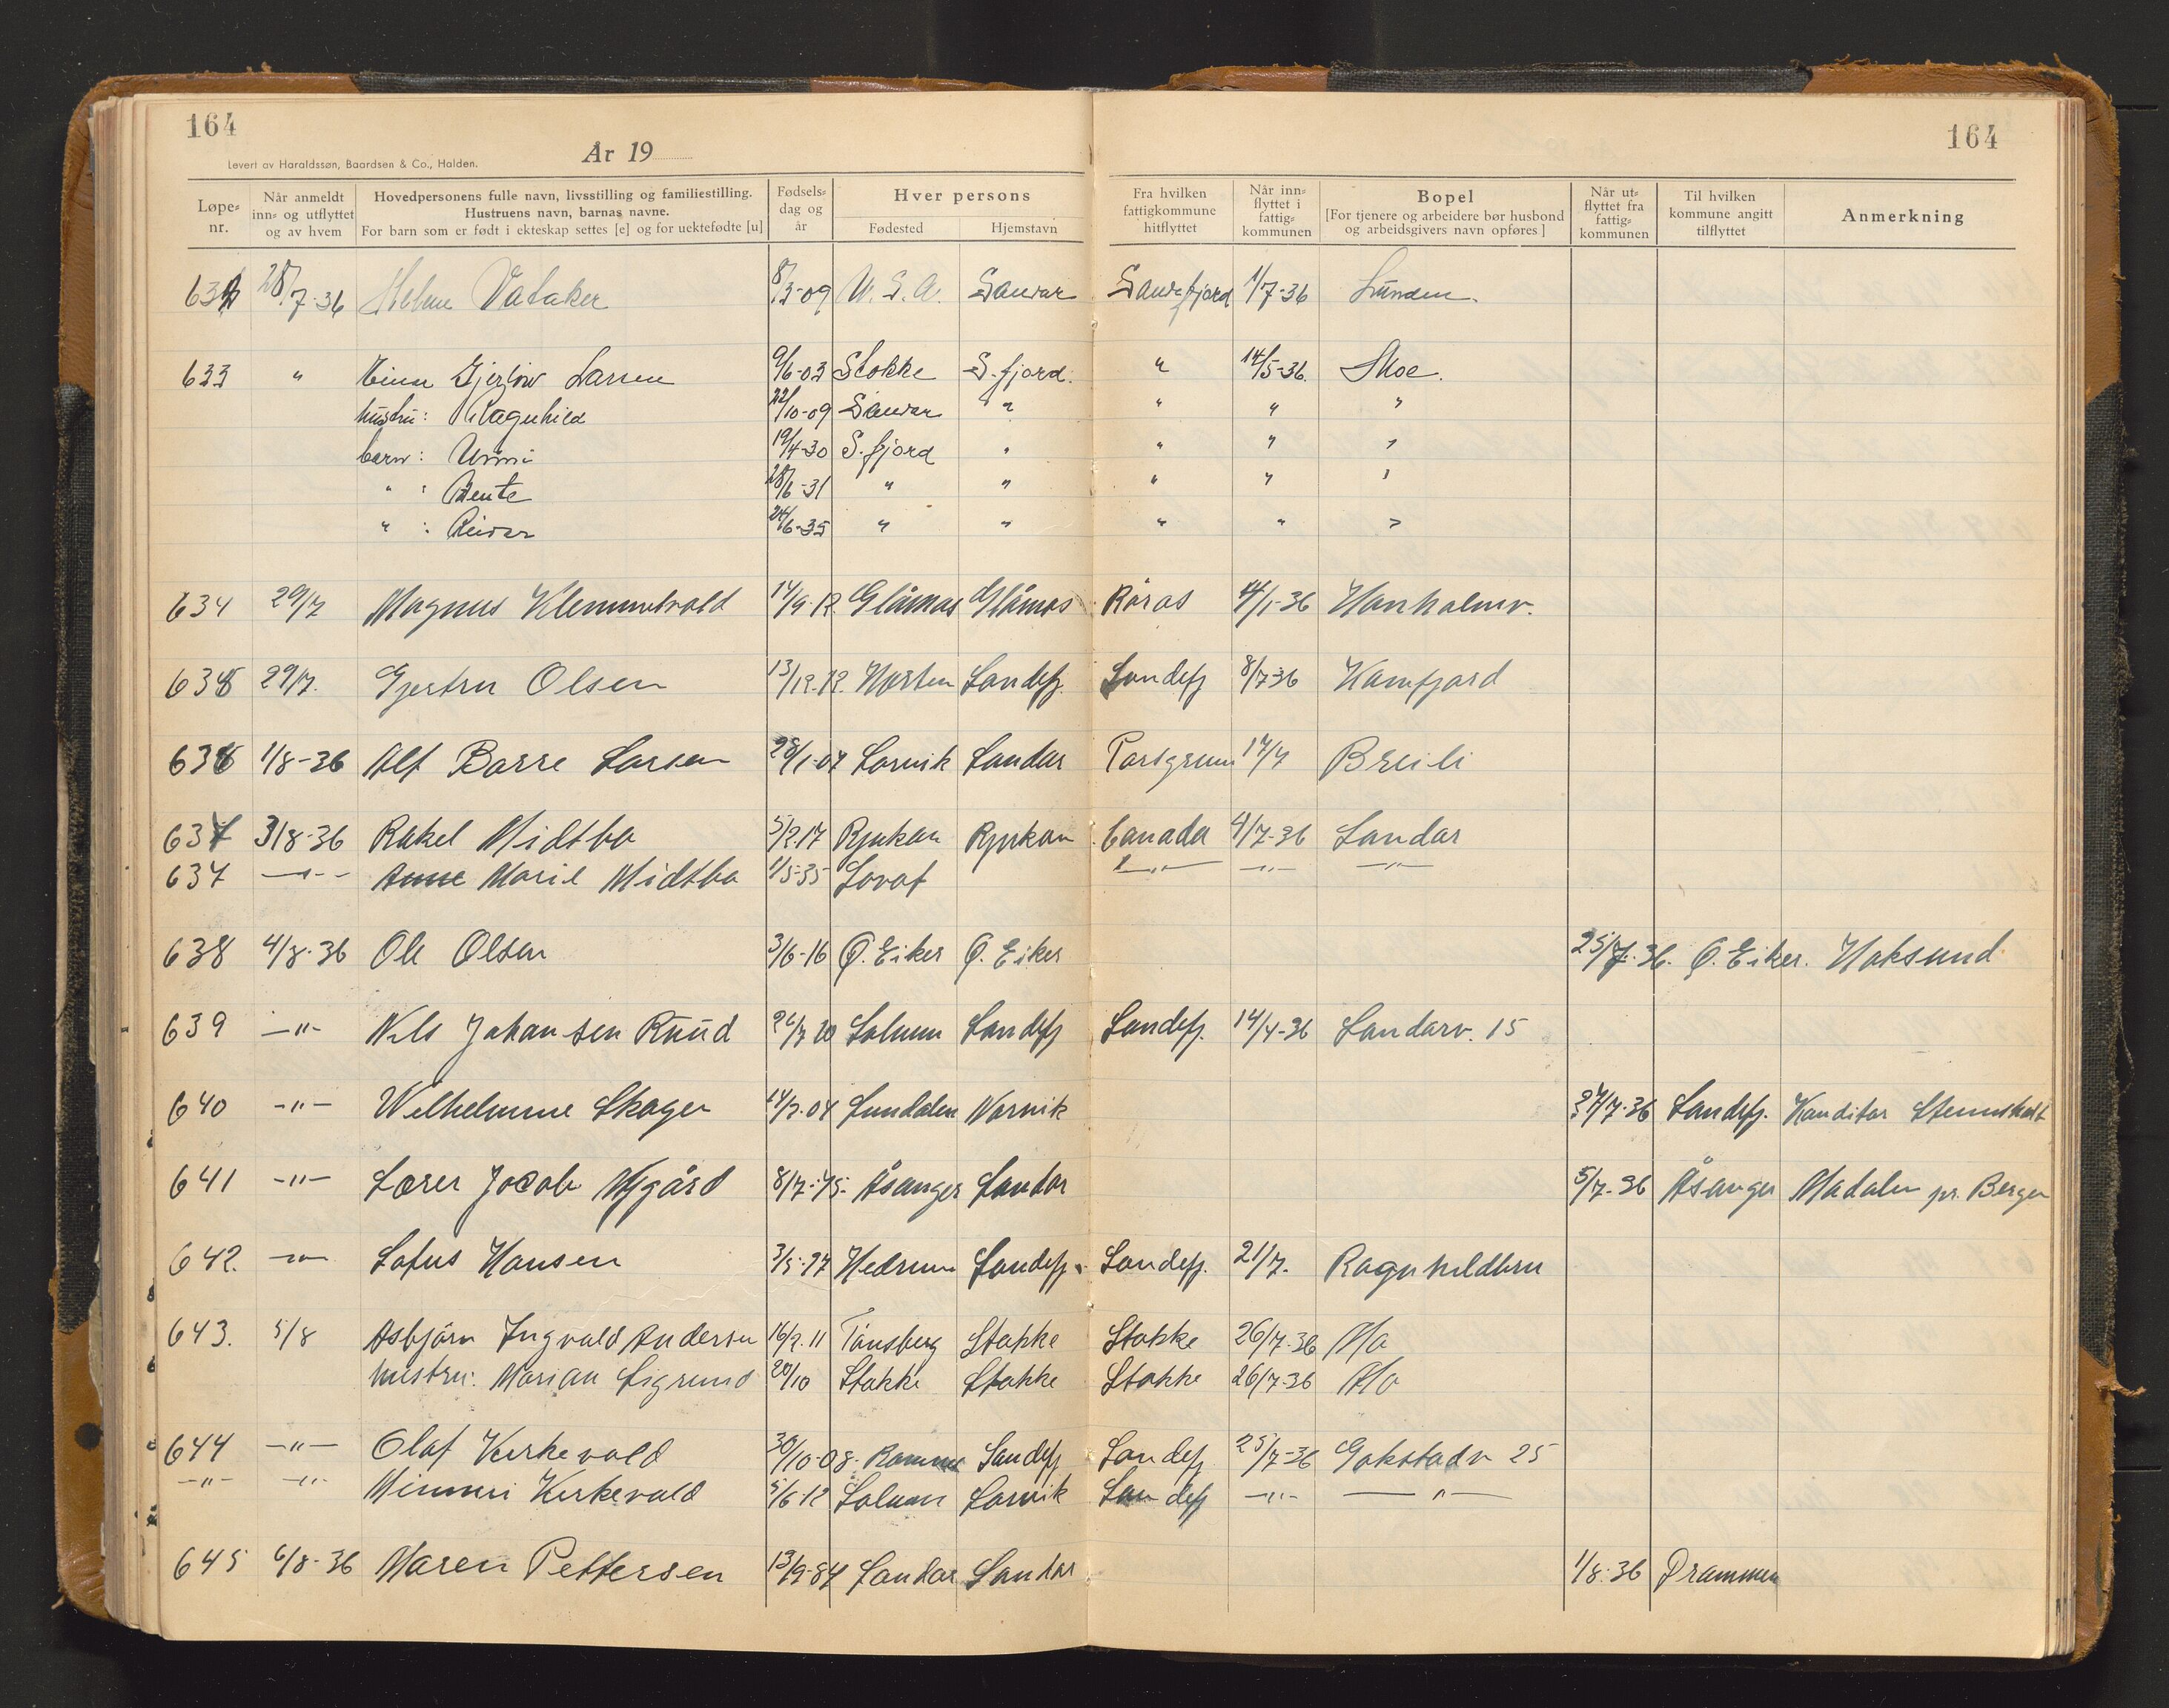 164
164
Levert av Haraldssøn, Baardsen & Co., Halden.
År 19
Løpe-nr.
Når anmeldt inn- og utflyttet og av hvem
Hovedpersonens fulle navn, livsstilling og familiestilling. Hustruens navn, barnas navne. For barn som er født i ekteskap settes [e] og for uektefødte [u]
Fødsels-dag og år
Hver persons
Fødested
Hjemstavn
Fra hvilken fattigkommune hitflyttet
Når inn-flyttet i fattig-kommunen
Bopel [For tjenere og arbeidere bør husbond og arbeidsgivers navn opføres]
Når ut-flyttet fra fattig-kommunen
Til hvilken kommune angitt tilflyttet
Anmerkning
632 28/7-36 Helene Vataker 8/3-09 U.S.A. Sandar Sandefjord 1/7-36 Lunden.
633 " Einar Larsen 9/6-03 Stokke S.fjord. " 14/5-36. Moe.
hustru: Ragnhild 22/10-09 Sandar " " " "
barn: Unni 19/4-30 S.fjord " " " "
" : Bente 28/6-31 " " " " "
" : Reidar 24/6-35 " " " " "
634 29/7 Magnus Klemmetvold 14/9-12 Glåmos Glåmos Röros 14/1-36 Hanholmv.
635 29/7. Gjertru Olsen 13/12-12. Horten Sandefj. Sandefj 8/7-36 Kamfjord
636 1/8-36 Alf Barre Larsen 28/1-07 Larvik Sandar Porsgrunn 17/7 Breili
637 3/8-36 Rakel Midtbo 5/2-17 Rjukan Rjukan Canada 4/7-36 Sandar
637 —"— Anne Marie Midtbo 1/5-35 Lovat —"— —"— —"—
638 4/8-36 Ole Olsen 3/6-16 Ø. Eiker Ø. Eiker 25/7-36. Ø. Eiker. Hoksund
639 —"— Nils Johansen Ruud 26/7 20 Solum Sandefj Sandefj. 14/4-36 Sandarv. 15
640 —"— Wilhelmine Skogen 14/2-04 Narvik 27/7-36 Sandefj. Konditor
641 —"— Lærer Jacob Nygård 8/7-75. Åsanger Sandar 5/7-36 Åsanger Madalen pr. Bergen
642. —"— Lofus Hansen 3/5-27 Hedrum Sandefj. Sandefj. 21/7. Ragnhildbru
643. 5/8 Asbjörn Ingvald Andersen 16/2-11 Tönsberg Stokke Stokke 26/7-36 Mo
hustru: Marian Sigrund 20/10 Stokke Stokke Stokke 26/7-36 Mo
644 —"— Olaf Kirkevold 30/10-08. Ramnes Sandefj Sandefj 25/7-36 Gokstadv 25
—"— —"— Mimmi Kirkevold 5/6-12 Solum Larvik Sandefj —"— —"—
645 6/8-36 Maren Pettersen 13/9-84 Sandar Sandar 1/8-36 Drammen